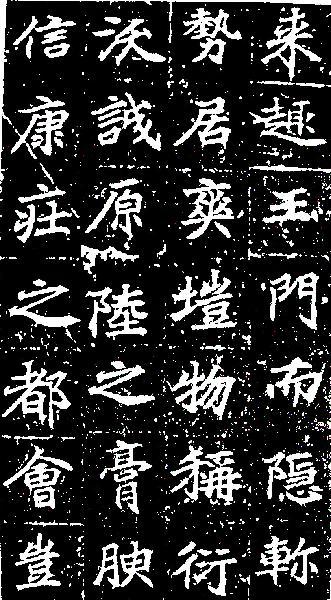 来趣王門而隱斬
勢居爽塏物稱衍
沃誠原陸之膏腴
信康莊之都會豈